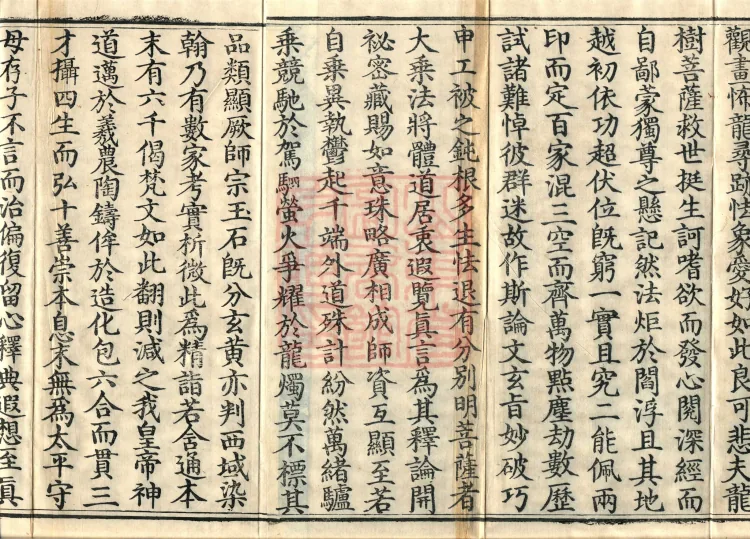 觀畫怖龍尋跡怯象愛好如此良可悲夫龍
樹菩薩救世挺生訶嗜欲而發心閱深經而
自鄙蒙獨尊之懸記然法炬於閻浮且其地
越初依功超伏位旣窮一實且究二能佩兩
印而定百家混三空而齊萬物點塵劫數歷
試諸難悼彼群迷故作斯論文玄旨妙破巧
申工被之鈍根多生怯退有分別明菩薩者
大乘法將體道居衷遐覽眞言爲其釋論開
祕密藏賜如意珠略廣相成師資互顯至若
自乘異執鬱起千端外道殊計紛然萬緒驢
乘競馳於駕駟螢火爭耀於龍燭莫不標其
品類顯厥師宗玉石旣分玄黃亦判西域染
翰乃有數家考實析微此爲精詣若含通本
末有六千偈梵文如此翻則減之我皇帝神
道邁於羲農陶鑄侔於造化包六合而貫三
才攝四生而弘十善崇本息末無爲太平守
母存子不言而治偏復留心釋典遐想至眞